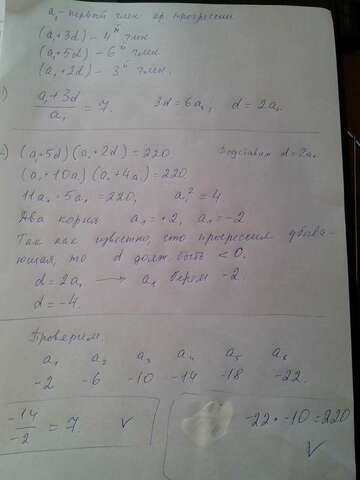 a₁ - первый член ар. прогрессии
(a₁+3d) - 4й член
(a₁+5d) - 6й член
(a₁+2d) - 3й член.
) (a₁+3d)/a₁ = 7. 3d=6a₁, d=2a₁
) (a₁+5d)(a₁+2d)=220 Подставим d=2a₁
(a₁+10a₁)(a₁+4a₁)=220
11a₁·5a₁=220, a₁²=4
Два корня a₁=+2, a₁=-2
Так как известно, что прогрессия убыва-
ющая, то d долж быть <0.
d=2a₁ → a₁ берем -2.
d=-4.
Проверим.
a₁ a₂ a₃ a₄ a₅ a₆
-2 -6 -10 -14 -18 -22.
-14/-2 = 7. V
-22·-10=220
V